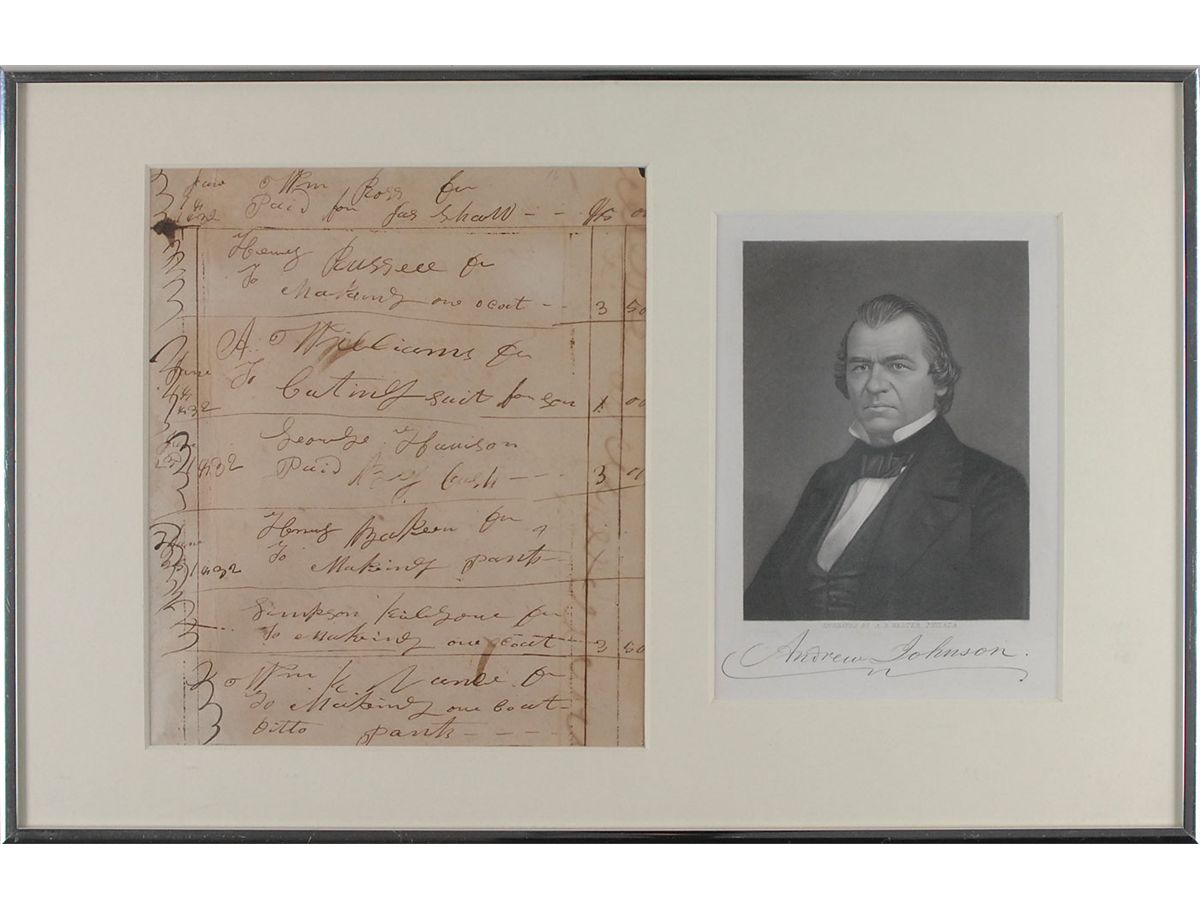 June Wm Ross Dr
1832 Paid for Jas Shall
Henry Russell Dr
To
Making one coat 3 50
A. Williams Dr
June To
1832 Cuting suit for son 1 00
George Harrison
1832 Paid By Cash 3 00
Henry Dr
June To
1832 Making pants
Simpson Dr
To Making one coat 3 50
Wm K. Nance Dr
To Making one coat
Ditto pants
ENGRAVED BY A B WALTER PHILADA
Andrew Johnson.